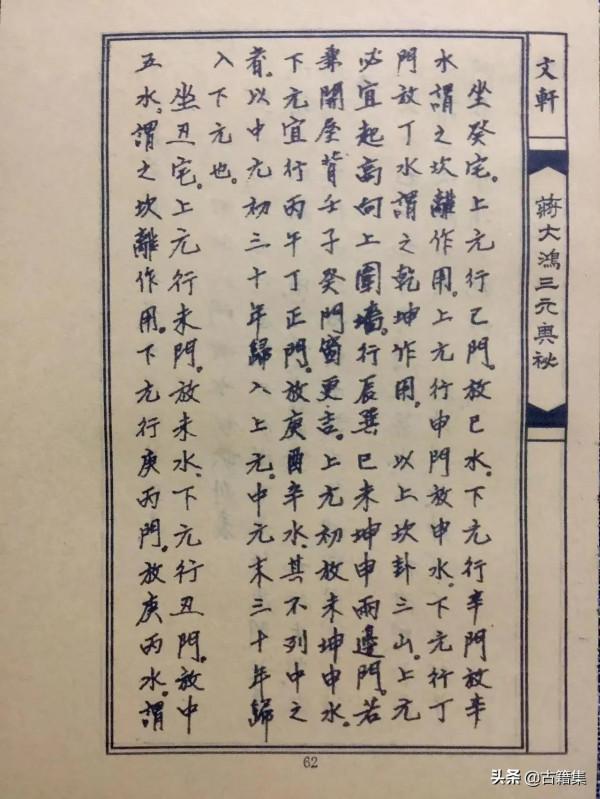 文軒
蔣大鴻三元奧秘
坐癸宅。上元行己門。放巳水。下元行辛門放辛
水謂之坎離作用。上元行申門放申水。下元行丁
門放丁水謂之乾坤作用。 以上坎卦三山。上元
必宜起高向上圍墻。行辰巽巳未坤申兩邊門。若
兼開屋背壬子癸門窗更吉。上元初放未坤申水。
下元宜行丙午丁正門。放庚酉辛水、其不列中之
者。以中元初三十年歸入上元。中元末三十年歸
入下元也。
坐丑宅。上元行未門。放未水、下元行丑門。放中
五水、謂之坎離作用。下元行庚丙門。放庚丙水。謂
62
头条 @古籍集